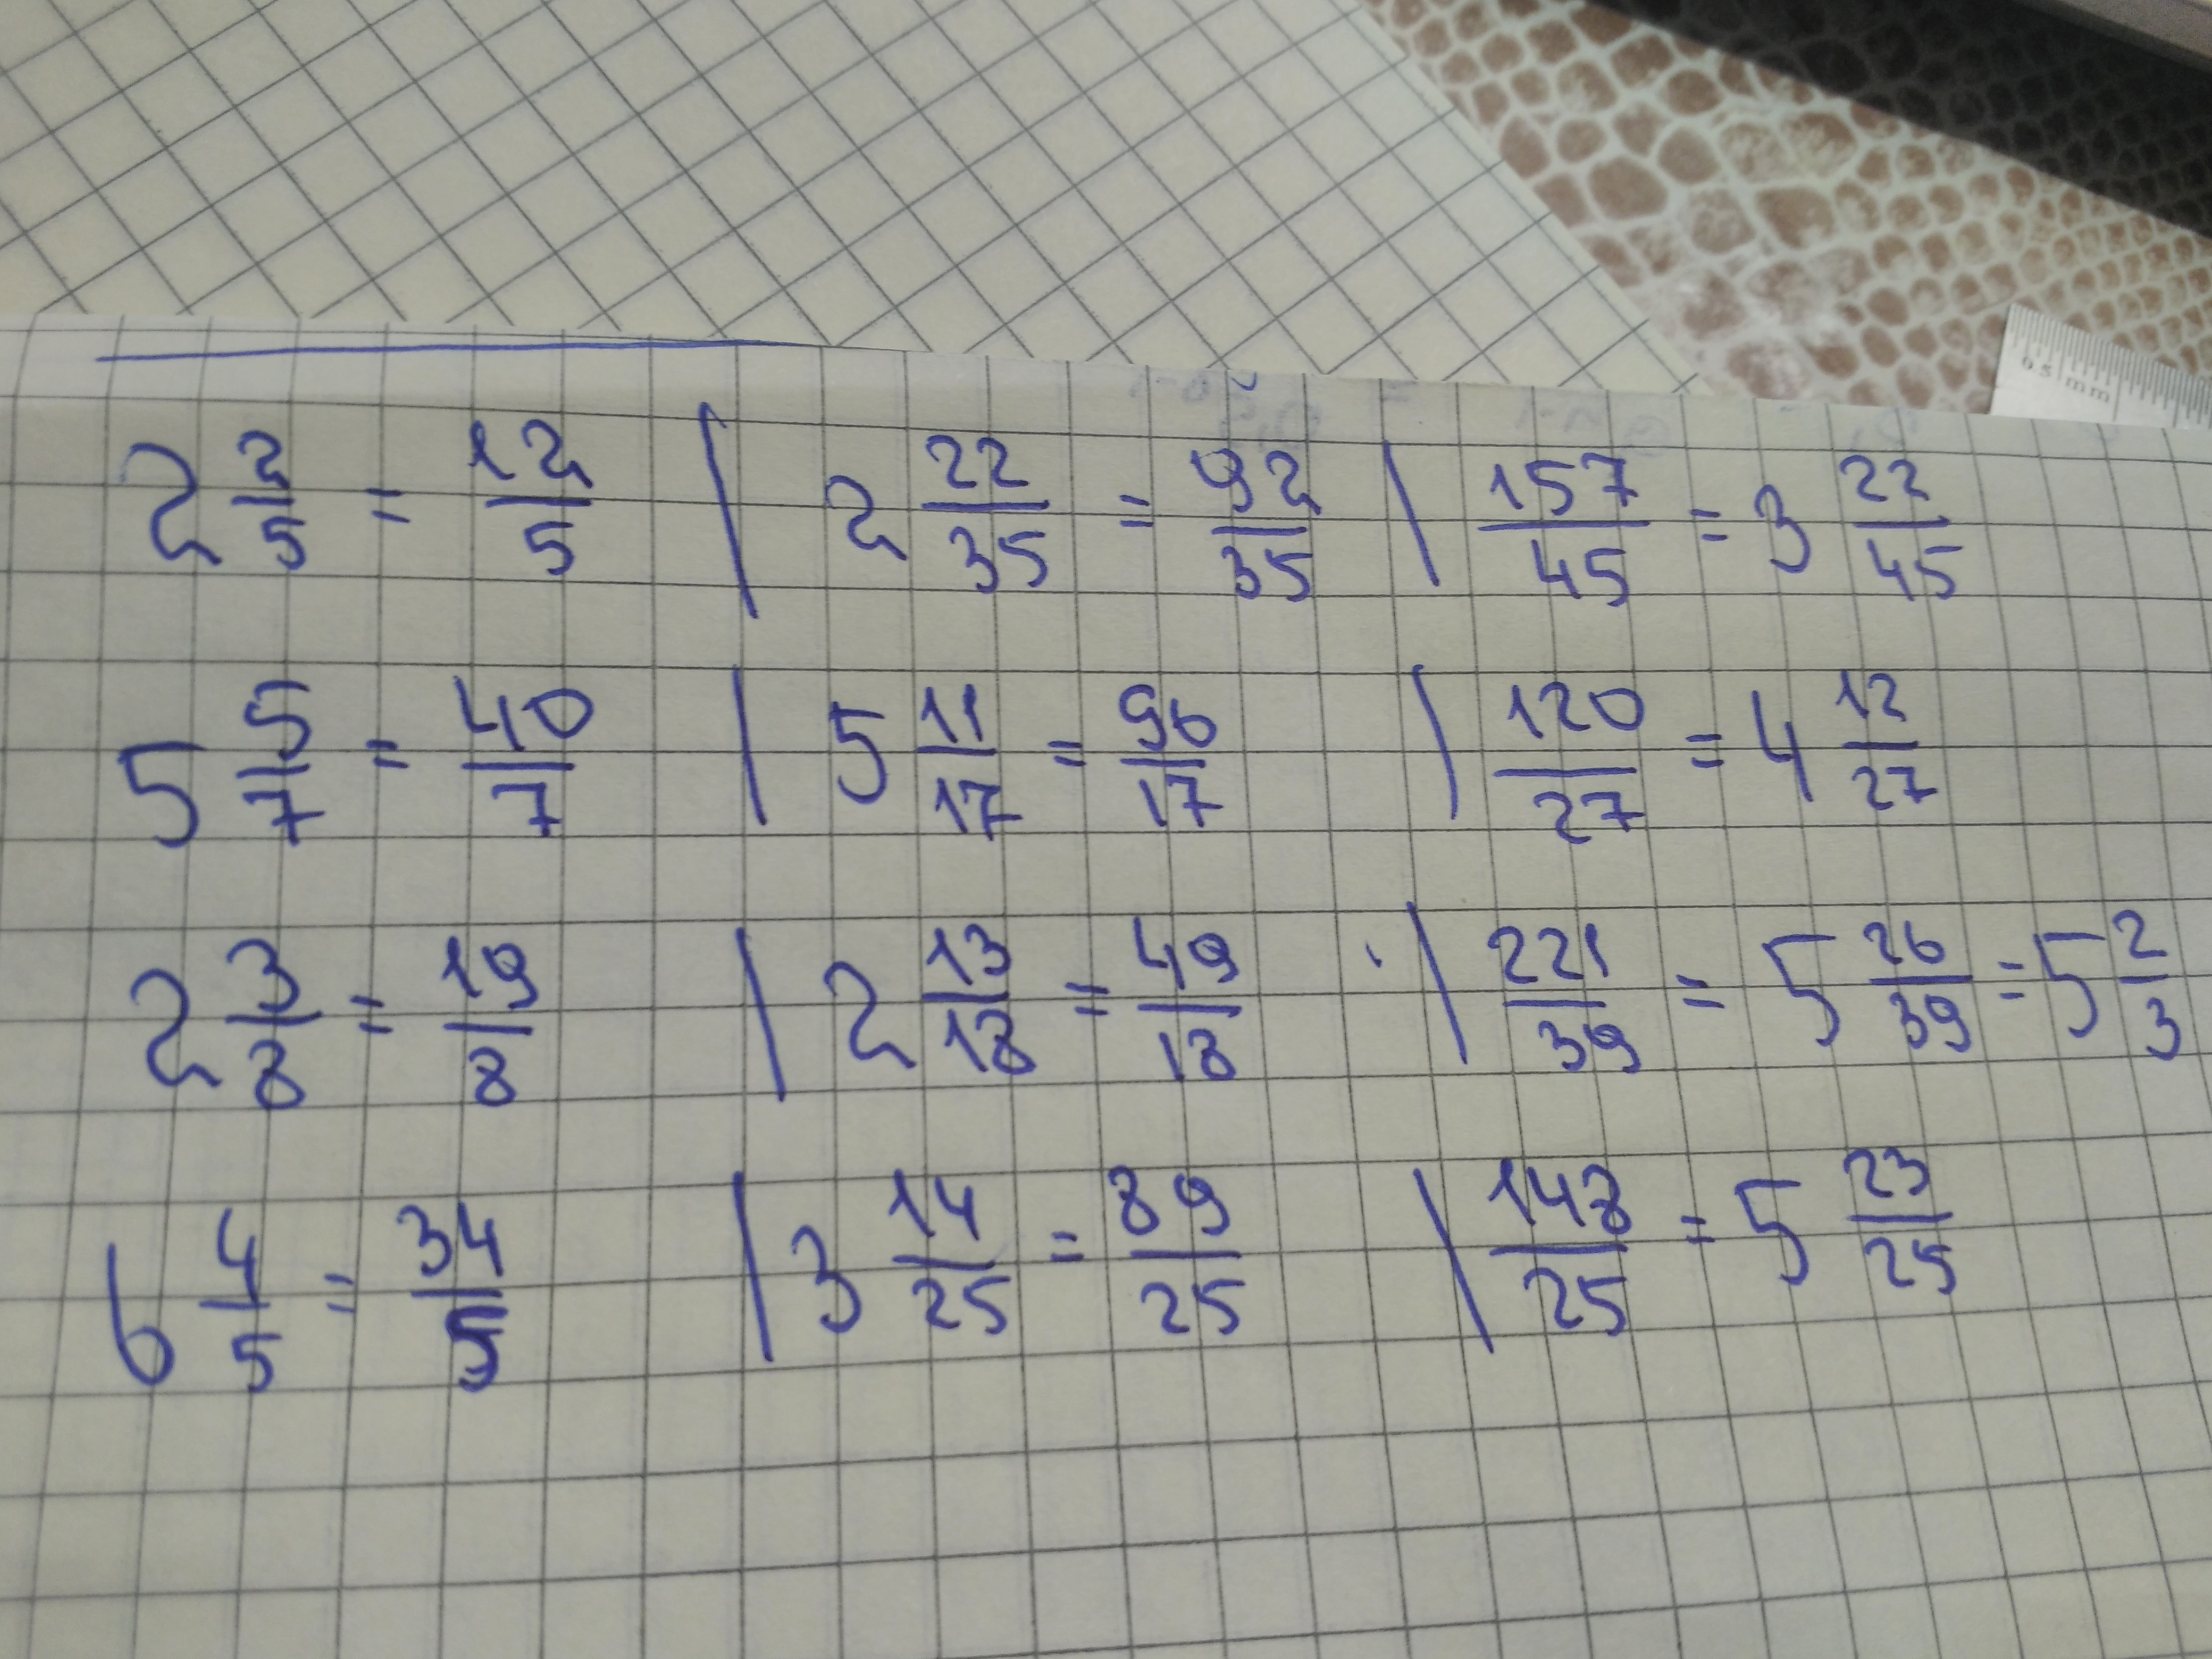 0.5 mm
2 2/5 = 12/5 | 2 22/35 = 92/35 | 157/45 = 3 22/45
5 5/7 = 40/7 | 5 11/17 = 96/17 | 120/27 = 4 12/27
2 3/8 = 19/8 | 2 13/18 = 49/18 | 221/39 = 5 26/39 = 5 2/3
6 4/5 = 34/5 | 3 14/25 = 89/25 | 148/25 = 5 23/25